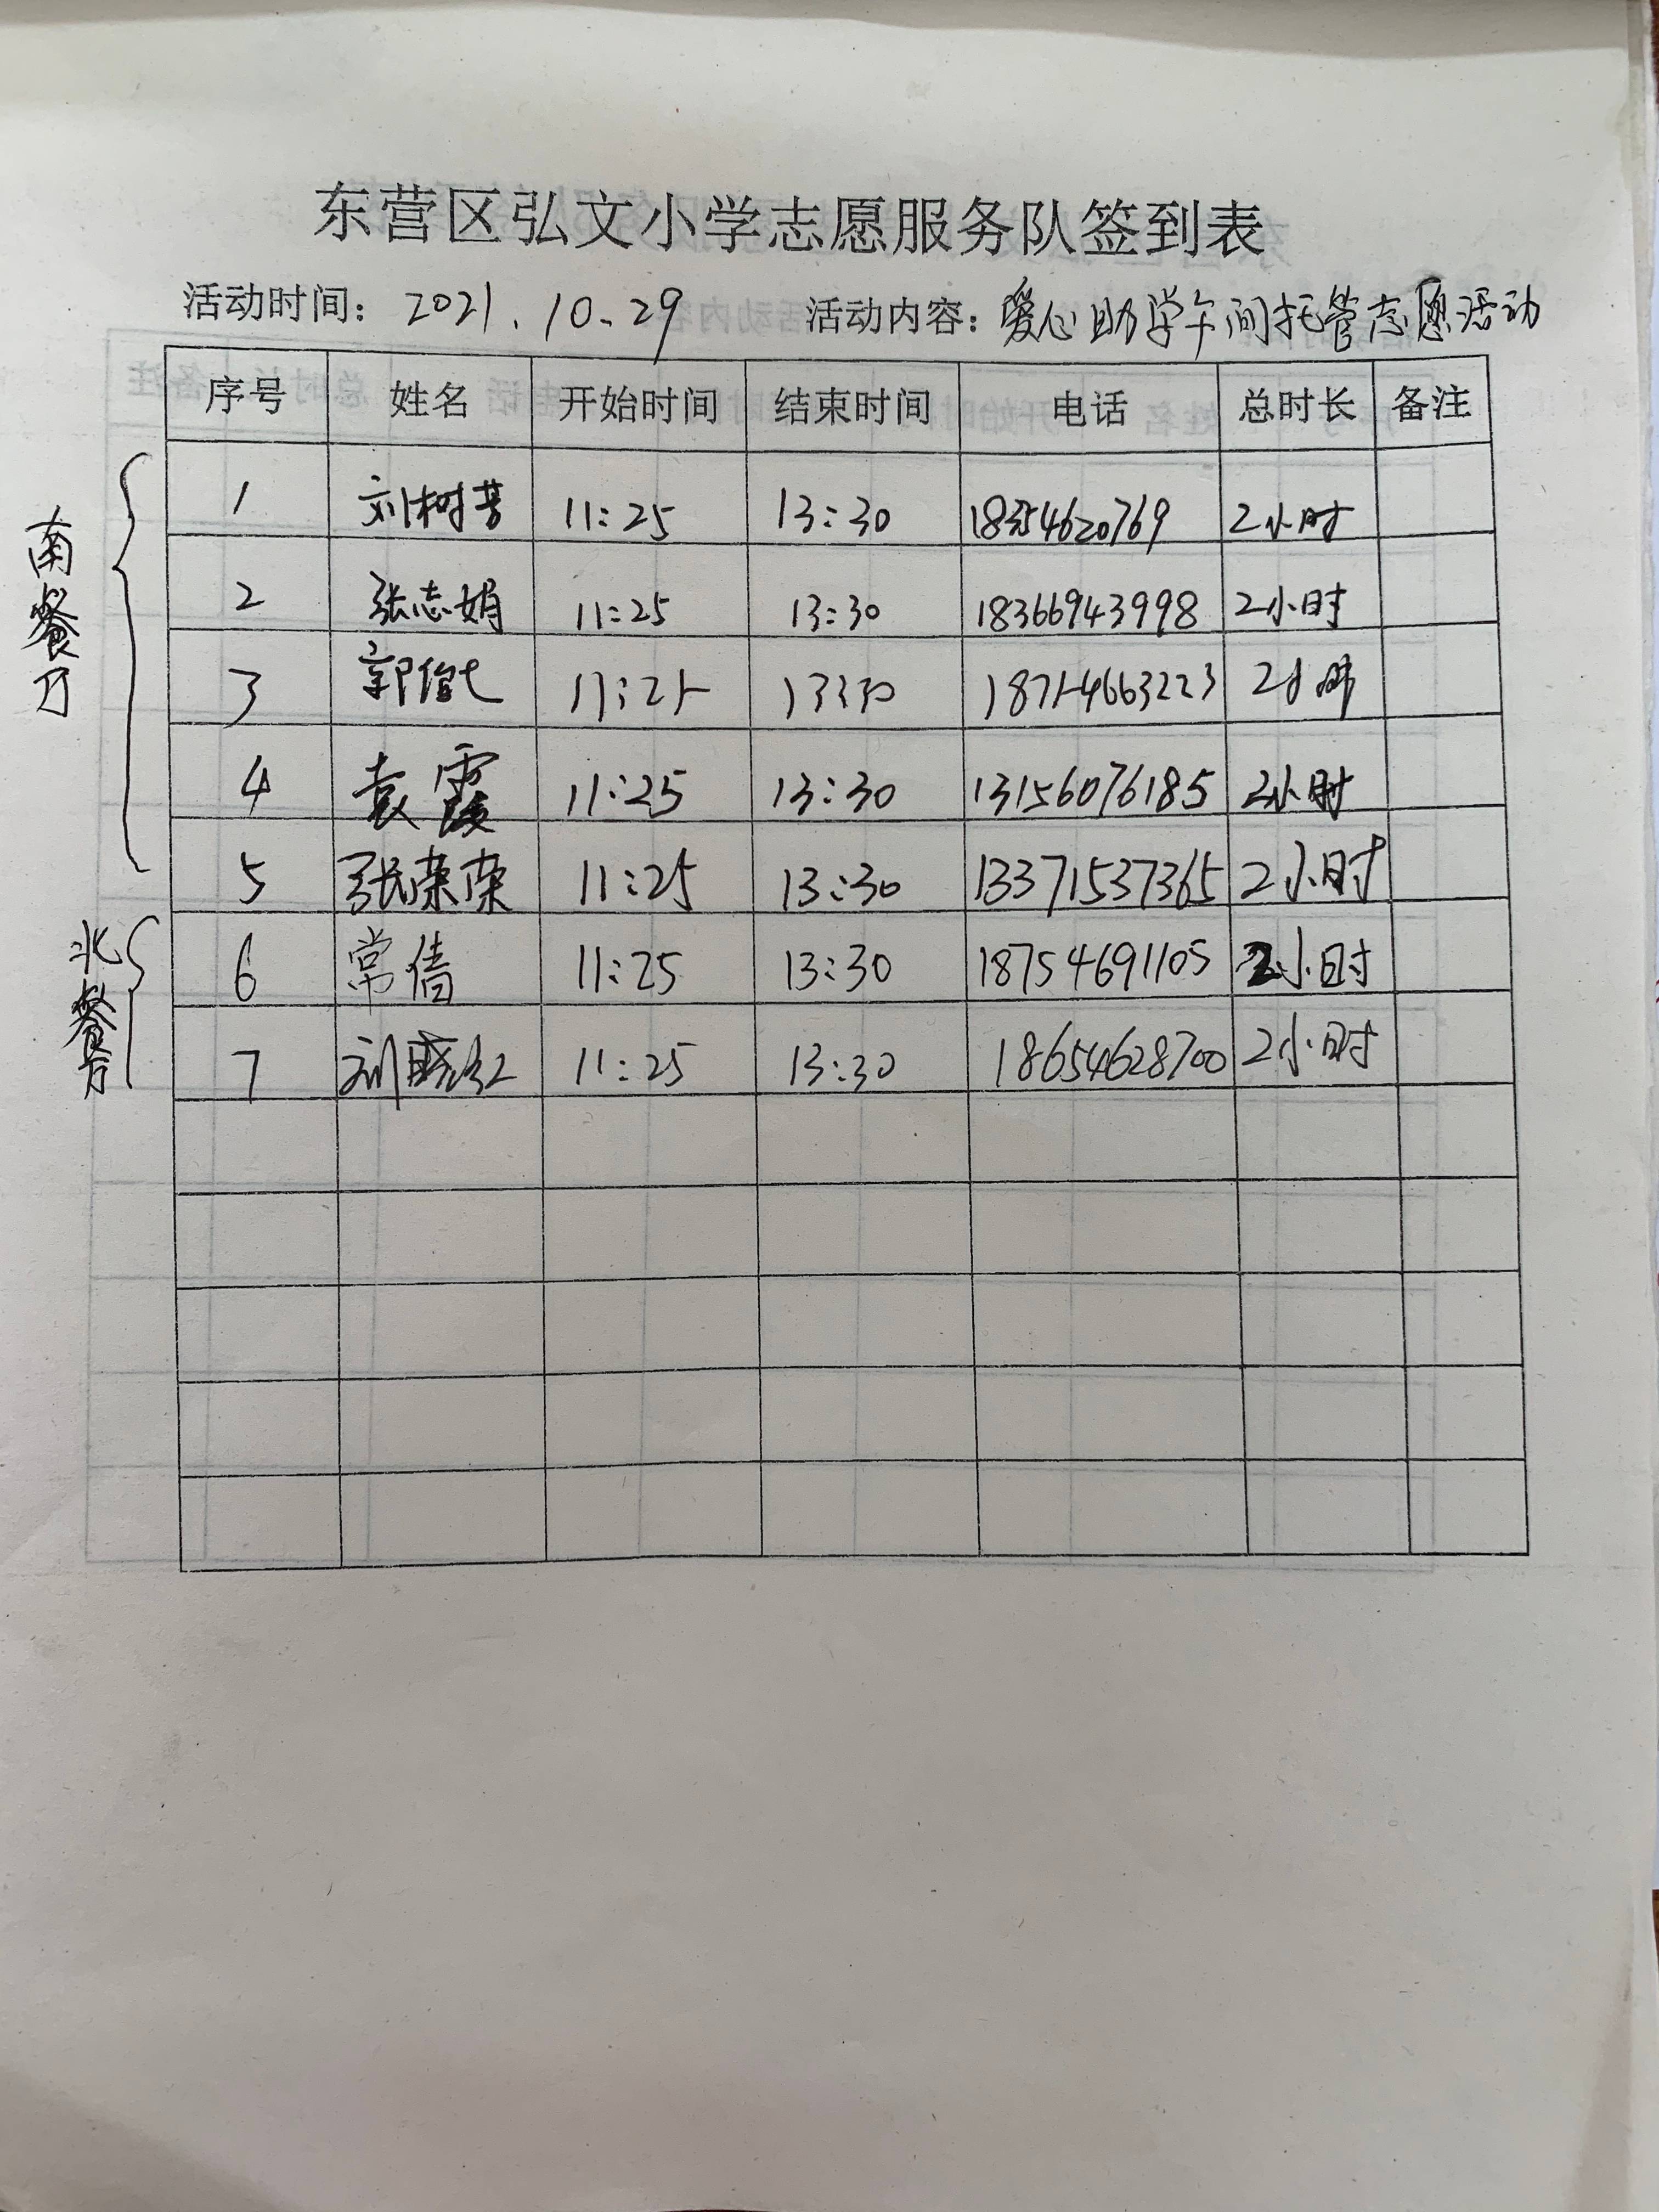 东营区弘文小学志愿服务队签到表
活动时间：2021.10.29 活动内容：爱心助学午间托管志愿活动
序号 姓名 开始时间 结束时间 电话 总时长 备注
南餐厅
1 刘树芳 11:25 13:30 18354620769 2小时
2 张志娟 11:25 13:30 18366943998 2小时
3 郭 11:25 13:30 18754663223 2小时
4 袁霞 11:25 13:30 13156076185 2小时
5 张荣荣 11:25 13:30 13371537365 2小时
北餐厅
6 常倩 11:25 13:30 18754691105 2小时
7 刘晓红 11:25 13:30 18654628700 2小时